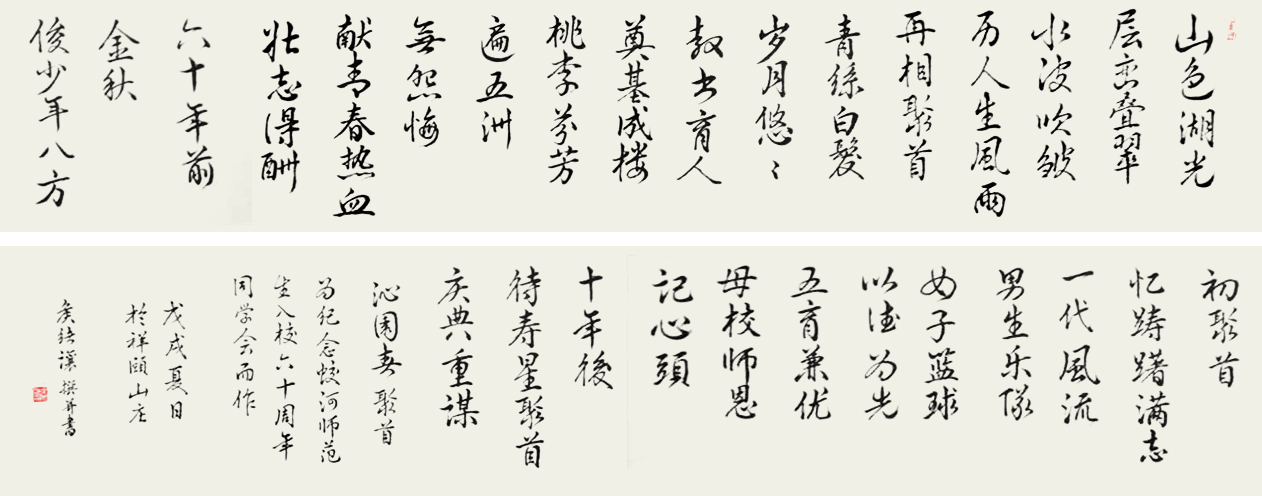 山色湖光
层峦叠翠
水波吹皱
历人生風雨
再相聚首
青絲白髮
岁月悠々
教书育人
奠基成楼
桃李芬芳
遍五洲
無怨悔
献青春热血
壮志得酬
六十年前
金秋
俊少年八方
初聚首
忆踌躇满志
一代風流
男生乐隊
女子篮球
以德为先
五育兼优
母校师恩
记心頭
十年後
待寿星聚首
庆典重謀
沁園春 聚首
为纪念蛟河师范
生入校六十周年
同学会而作
戊戌夏日
於祥頤山庄
撰并書